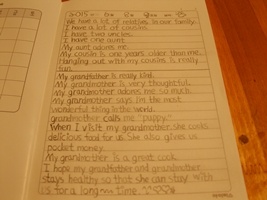 2015
We have a lot of relatives in our family.
I have a lot of cousins.
I have two uncles.
I have one aunt.
My aunt adores me.
My cousin is one years older than me.
Hanging out with my cousins is really
fun.
My grandfather is really kind.
My grandmother is very thoughtful.
My grandmother adores me so much.
My grandmother says I'm the most
wonderful thing in the world.
grandmother calls me "puppy."
When I visit my grandmother she cooks
delicious food for us. She also gives us
pocket money.
My grandmother is a great cook.
I hope my grandfather and grandmother
stays healthy so that she can stay with
us for a long time.